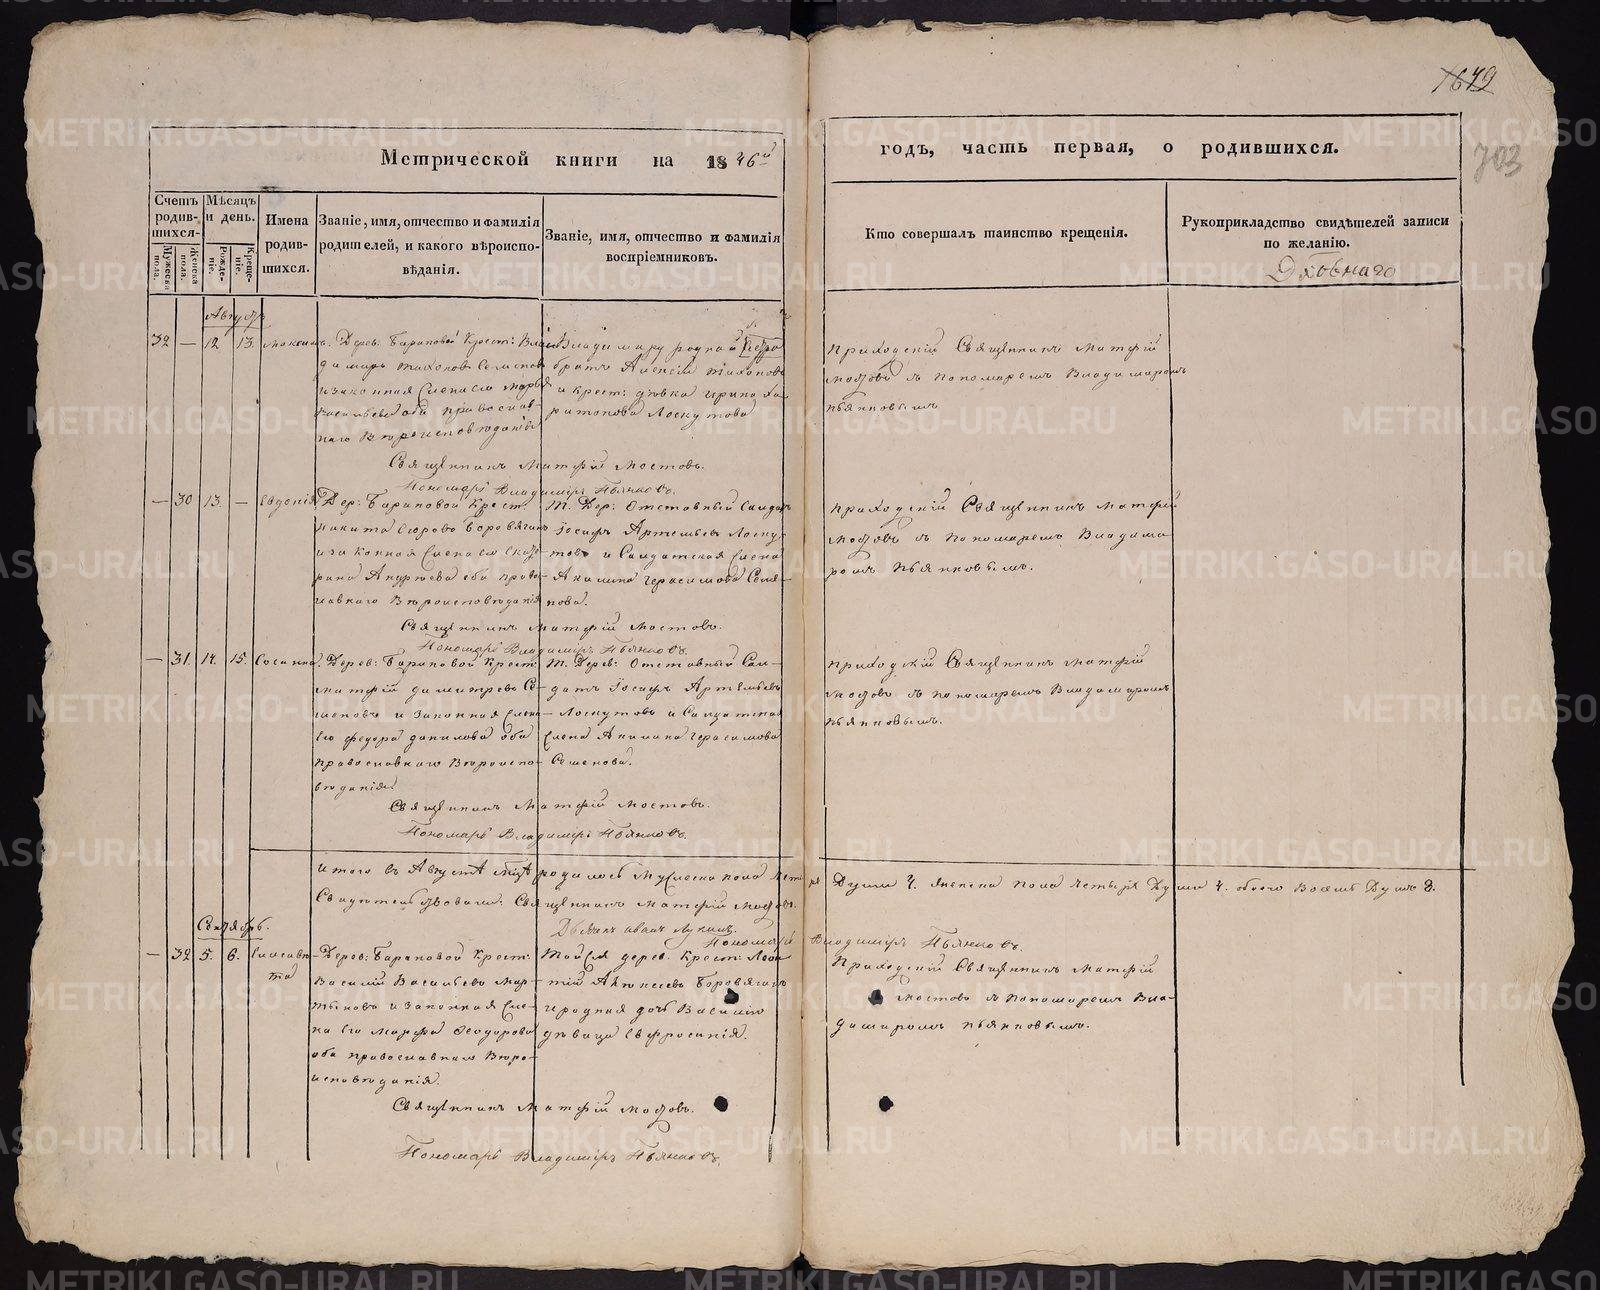 1679
703
Метрической книги на 1846й
годъ, часть первая, о родившихся.
Счетъ родив-шихся.
Мужеска пола.
Женска пола.
Мѣсяцъ и день.
Рожде-ніе.
Креще-ніе.
Имена родив-шихся.
Званіе, имя, отчество и фамилія родителей, и какого вѣроиспо-вѣданія.
Званіе, имя, отчество и фамилія воспріемниковъ.
Кто совершалъ таинство крещенія.
Рукоприкладство свидѣтелей записи по желанію.
Августъ
32 — 12 13.
Дерев: Бараковой Крест: Влади
димиръ Тихоновъ
и законная Жена его Марья
Васильева оба православ-
наго Вѣроисповѣданія
Владимиру родной
братъ Алексій Тихоновъ
и крест: дѣвка Ирина Ха
ритонова Лоскутова
Приходскій Священникъ Матфій
Мостовъ съ Пономаремъ Владимиромъ
Пьянковымъ
Священникъ Матфій Мостовъ.
Пономарь Владимиръ Пьянковъ.
— 30 13. — Евдокія
Дер: Бараковой Крест:
Никита
и законная Жена его Екате-
рина оба право-
славнаго Вѣроисповѣданія
Т. Дер: Отставный Салдатъ
Іосифъ Артемьевъ Лоску-
товъ и Салдатская Жена
Акилина Герасимова Семе-
нова.
Приходскій Священникъ Матфій
Мостовъ съ Пономаремъ Владими
ромъ Пьянковымъ.
Священникъ Матфій Мостовъ.
Пономарь Владимиръ Пьянковъ.
— 31. 14. 15. Сосанна.
Дерев: Бараковой Крест:
Матфій Димитревъ Се-
меновъ и законная Жена
его Федора Данилова оба
православнаго Вѣроиспо-
вѣданія.
Т. Дерев: Отставный Сал-
датъ Іосифъ Артемьевъ
Лоскутовъ и Салдатская
Жена Акилина Герасимова
Семенова.
Приходскій Священникъ Матфій
Мостовъ съ Пономаремъ Владимиромъ
Пьянковымъ.
Священникъ Матфій Мостовъ.
Пономарь Владимиръ Пьянковъ.
Итого въ Августѣ мцѣ родилось Мужеска пола Четы
ре Души 4. Женска пола четыре Души 4. обоего Восемь Душъ 8.
Свидѣтельствовали: Священникъ Матфій Мостовъ.
Дьячекъ Иванъ Лукинъ.
Пономарь Владимиръ Пьянковъ
Сентябрь.
— 32 5. 6. Елисавета
Дерев: Бараковой Крест:
Василій Васильевъ Мар-
тыновъ и законная Же-
на его Марфа Феодорова
оба православнаго Вѣро-
исповѣданія.
Той же дерев. Крест:
Боровягинъ
и родная дочь Василію
дѣвица Евфросинія.
Приходскій Священникъ Матфій
Мостовъ съ Пономаремъ Вла-
димиромъ Пьянковымъ.
Священникъ Матфій Мостовъ.
Пономарь Владимиръ Пьянковъ.
METRIKI.GASO-URAL.RU